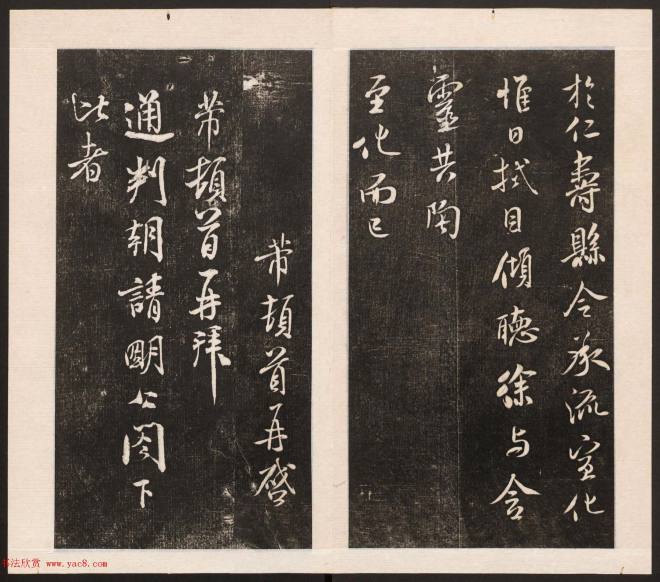 於仁壽縣令承流宣化
惟日拭目傾聽徐与含
靈共陶
至化而已
芾頓首再啓
芾頓首再拜
通判朝請明公閤下
比者
书法欣赏 www.yac8.com